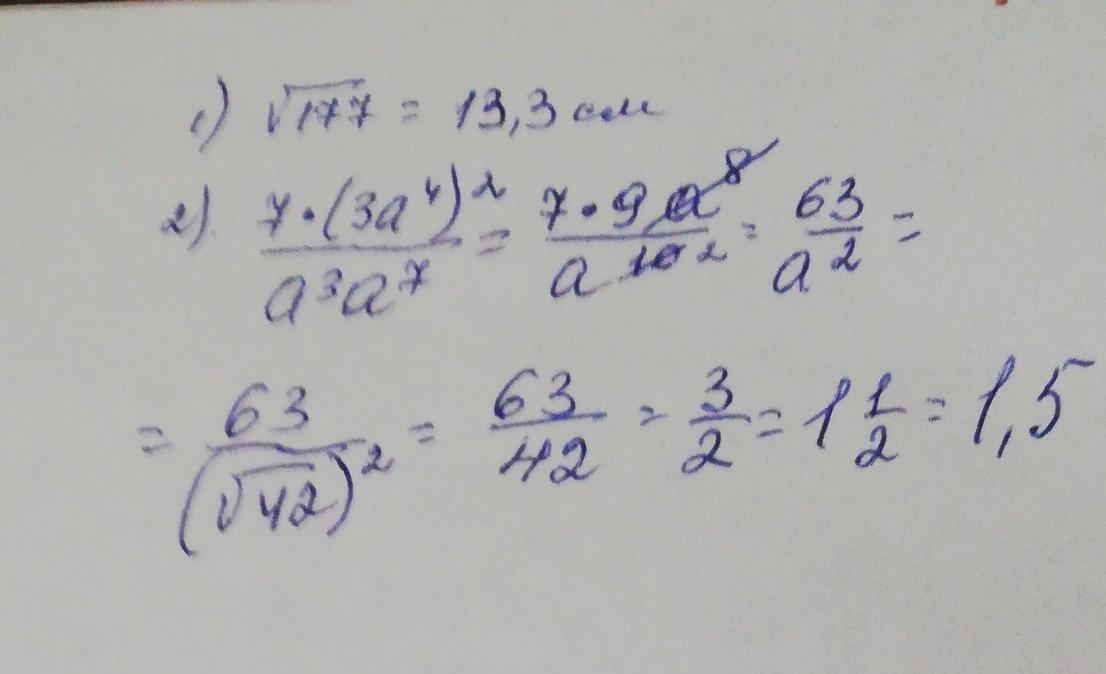 1) √177 = 13,3 см
2). 7·(3a⁴)²/a³a⁷ = 7·9a⁸/a¹⁰ ² = 63/a² =
= 63/(√42)² = 63/42 = 3/2 = 1 1/2 = 1,5